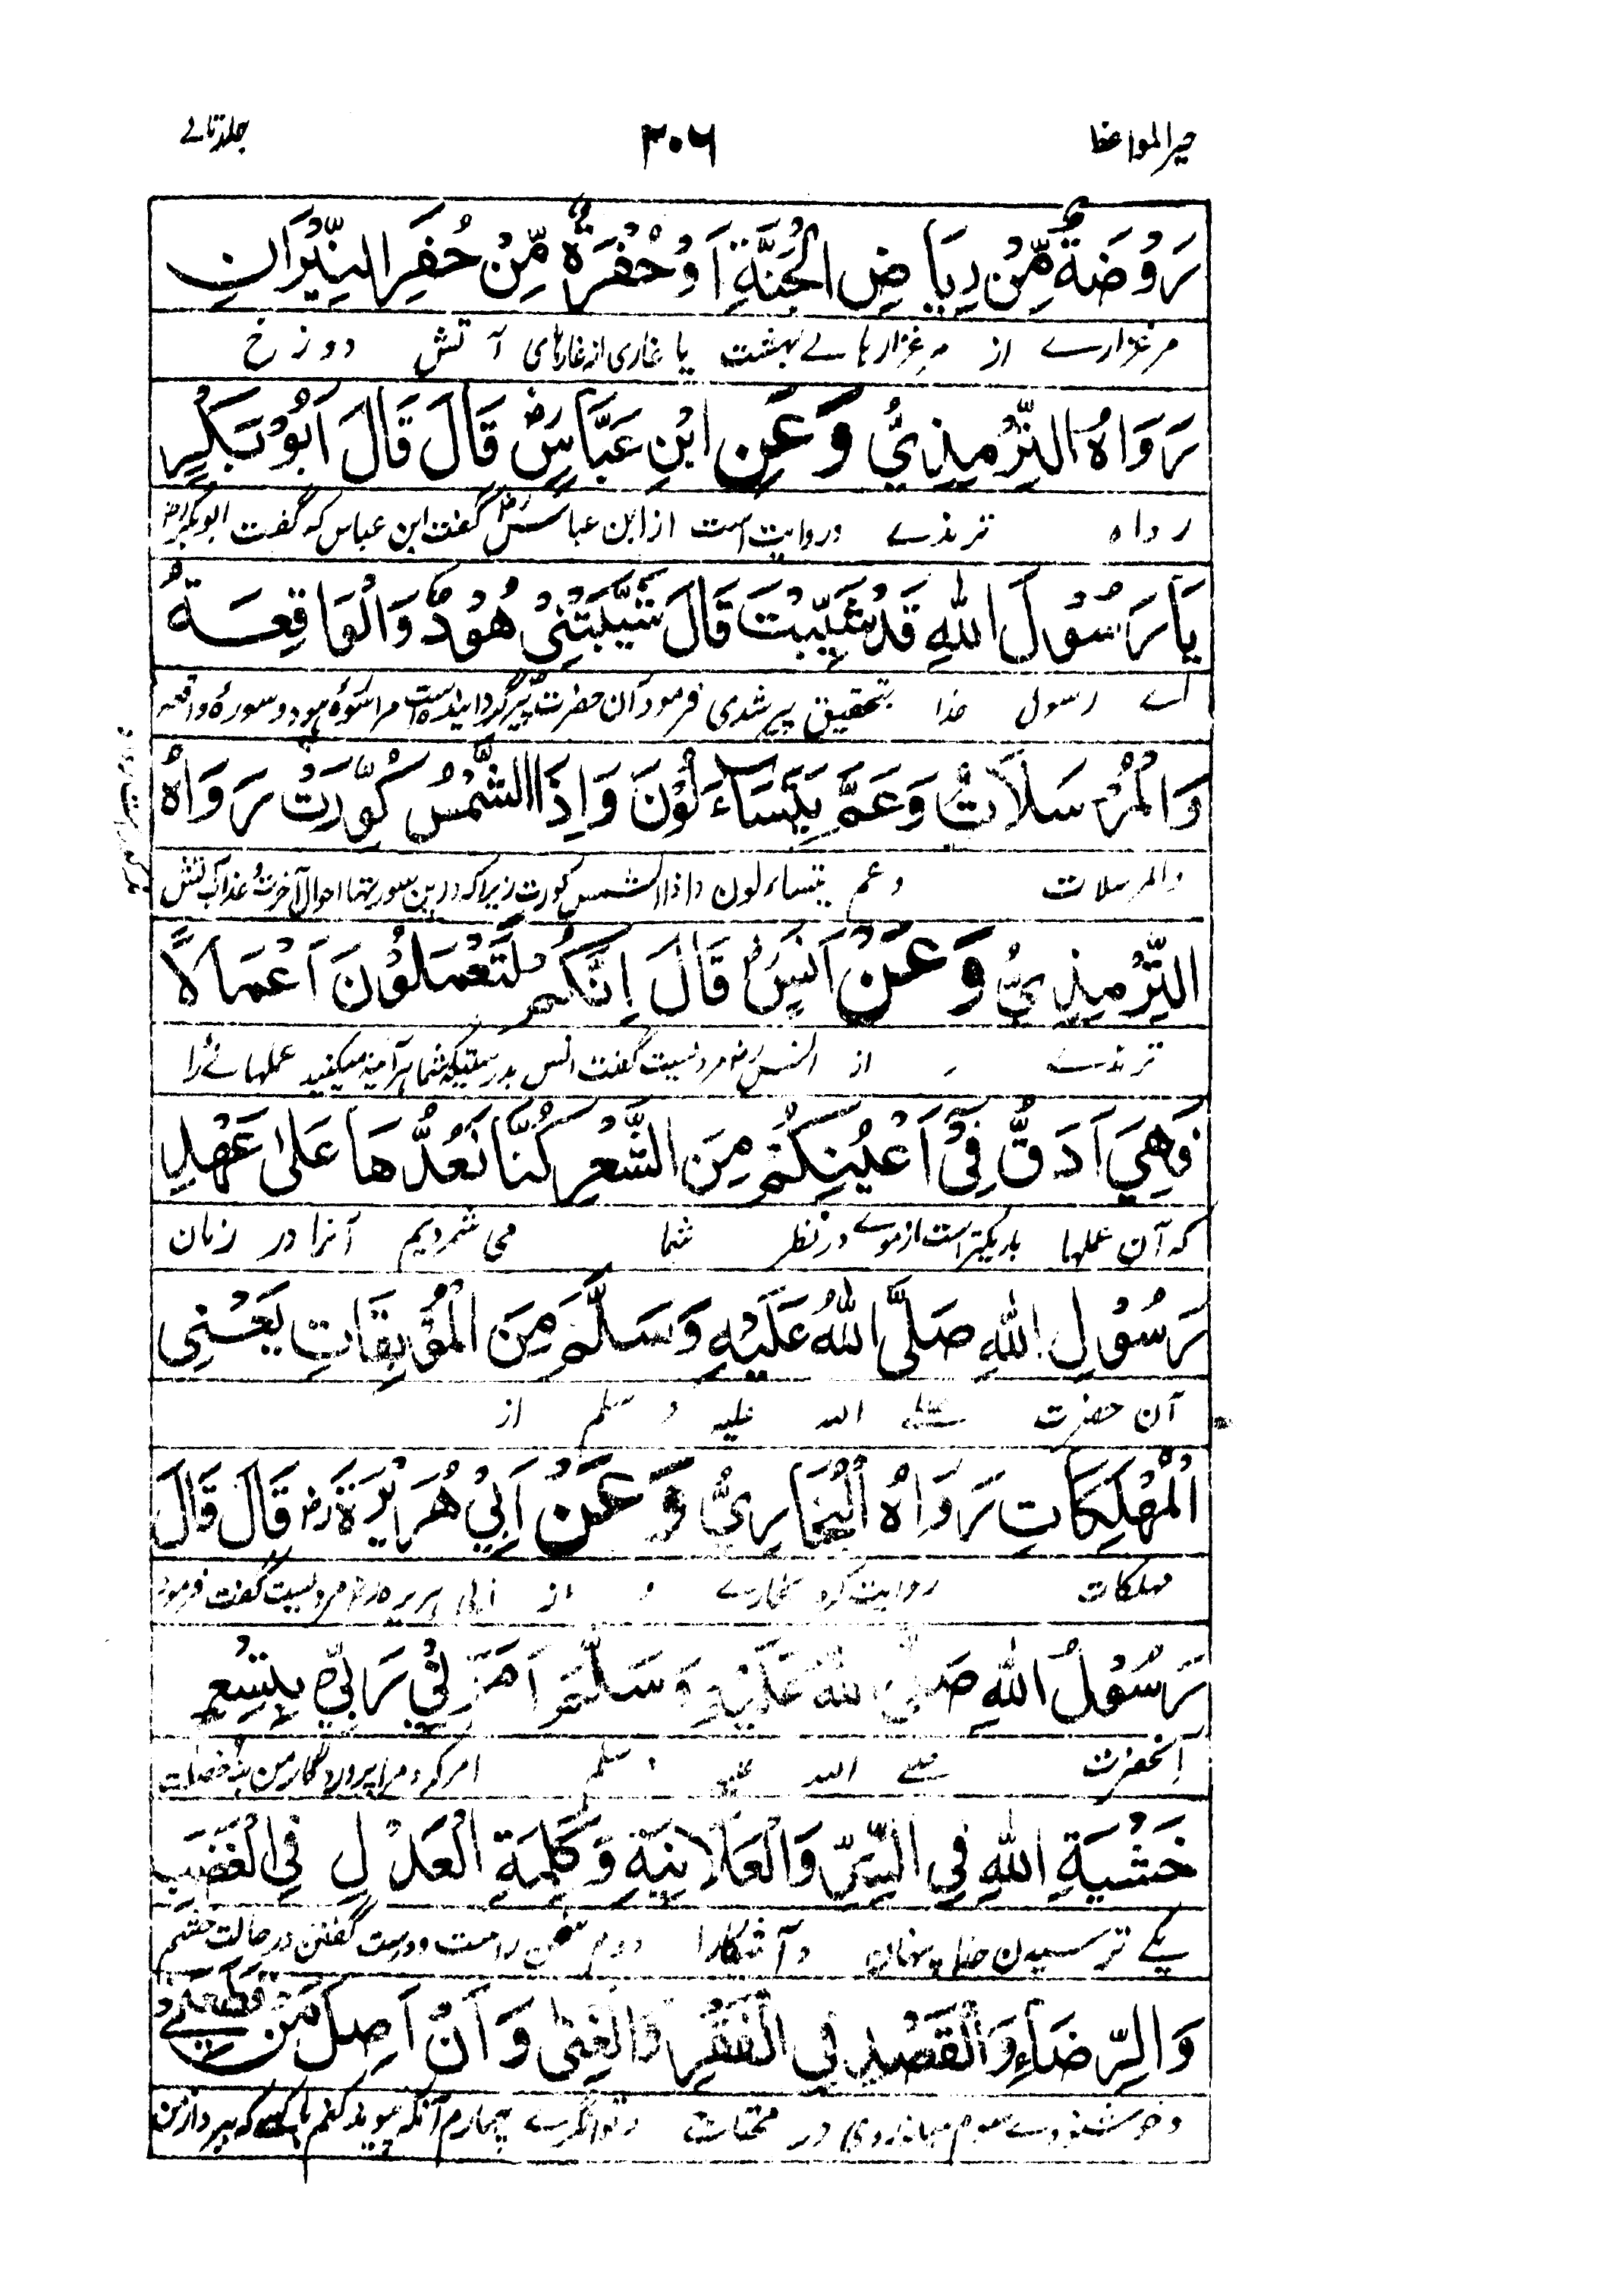 خیر المواعظ ۳۰۶ جلد ثانے
رَوْضَةٌ مِّنْ رِيَاضِ الْجَنَّةِ اَوْ حُفْرَةٌ مِّنْ حُفَرِ النِّيْرَانِ
مرغزارے از مرغزارہاے بہشت یا غاری از غارہای آتش دوزخ
رَوَاهُ التِّرْمِذِيُّ وَعَنِ ابْنِ عَبَّاسٍ رض قَالَ قَالَ اَبُوْ بَكْرٍ
رواہ ترمذے و روایت است از ابن عباس رض گفت ابن عباس کہ گفت ابوبکر رض
يَا رَسُوْلَ اللهِ قَدْ شِيْبْتَ قَالَ شَيَّبَتْنِيْ هُوْدٌ وَالْوَاقِعَةُ
اے رسول خدا بتحقیق پیر شدی فرمود آن حضرت پیر گردانیدہ است مرا سورۂ ہود و سورۂ واقعہ
وَالْمُرْسَلَاتُ وَعَمَّ يَتَسَاءَلُوْنَ وَاِذَا الشَّمْسُ كُوِّرَتْ رَوَاهُ
والمرسلات وعم یتساءلون واذا الشمس کورت زیرا کہ درین سورتہا احوال آخرت و عذاب
التِّرْمِذِيُّ وَعَنْ اَنَسٍ رض قَالَ اِنَّكُمْ لَتَعْمَلُوْنَ اَعْمَالًا
ترمذے و از انس رض مرویست گفت انس بدرستیکہ شما ہرآینہ میکنید عملہائے را
فَهِيَ اَدَقُّ فِيْ اَعْيُنِكُمْ مِنَ الشَّعْرِ كُنَّا نَعُدُّهَا عَلٰى عَهْدِ
کہ آن عملہا باریکتر است از موے در نظر شما می شمردیم آنرا در زمان
رَسُوْلِ اللهِ صَلَّى اللهُ عَلَيْهِ وَسَلَّمَ مِنَ الْمُوْبِقَاتِ يَعْنِى
آن حضرت صلے اللہ علیہ و سلم از
الْمُهْلِكَاتِ رَوَاهُ الْبُخَارِيُّ وَعَنْ اَبِيْ هُرَيْرَةَ رض قَالَ قَالَ
مہلکات روایت کرد بخارے و از ابی ہریرہ رض مرویست گفت فرمود
رَسُوْلُ اللهِ صَلَّى اللهُ عَلَيْهِ وَسَلَّمَ اَمَرَنِيْ رَبِّيْ بِتِسْعٍ
آنحضرت صلے اللہ علیہ و سلم امر کرد مرا پروردگار من بنہ خصلت
خَشْيَةِ اللهِ فِي السِّرِّ وَالْعَلَانِيَةِ وَكَلِمَةِ الْعَدْلِ فِي الْغَضَبِ
یکے ترسیدن خدا پنہان و آشکارا دوم سخن راست و درست گفتن در حالت خشم
وَالرِّضَاءِ وَالْقَصْدِ فِي الْفَقْرِ وَالْغِنٰى وَاَنْ اَصِلَ مَنْ قَطَعَنِيْ
و خوشنودے سوم میانہ روی در و توانگرے چہارم آنکہ پیوند کنم با کسے کہ ببرد از من